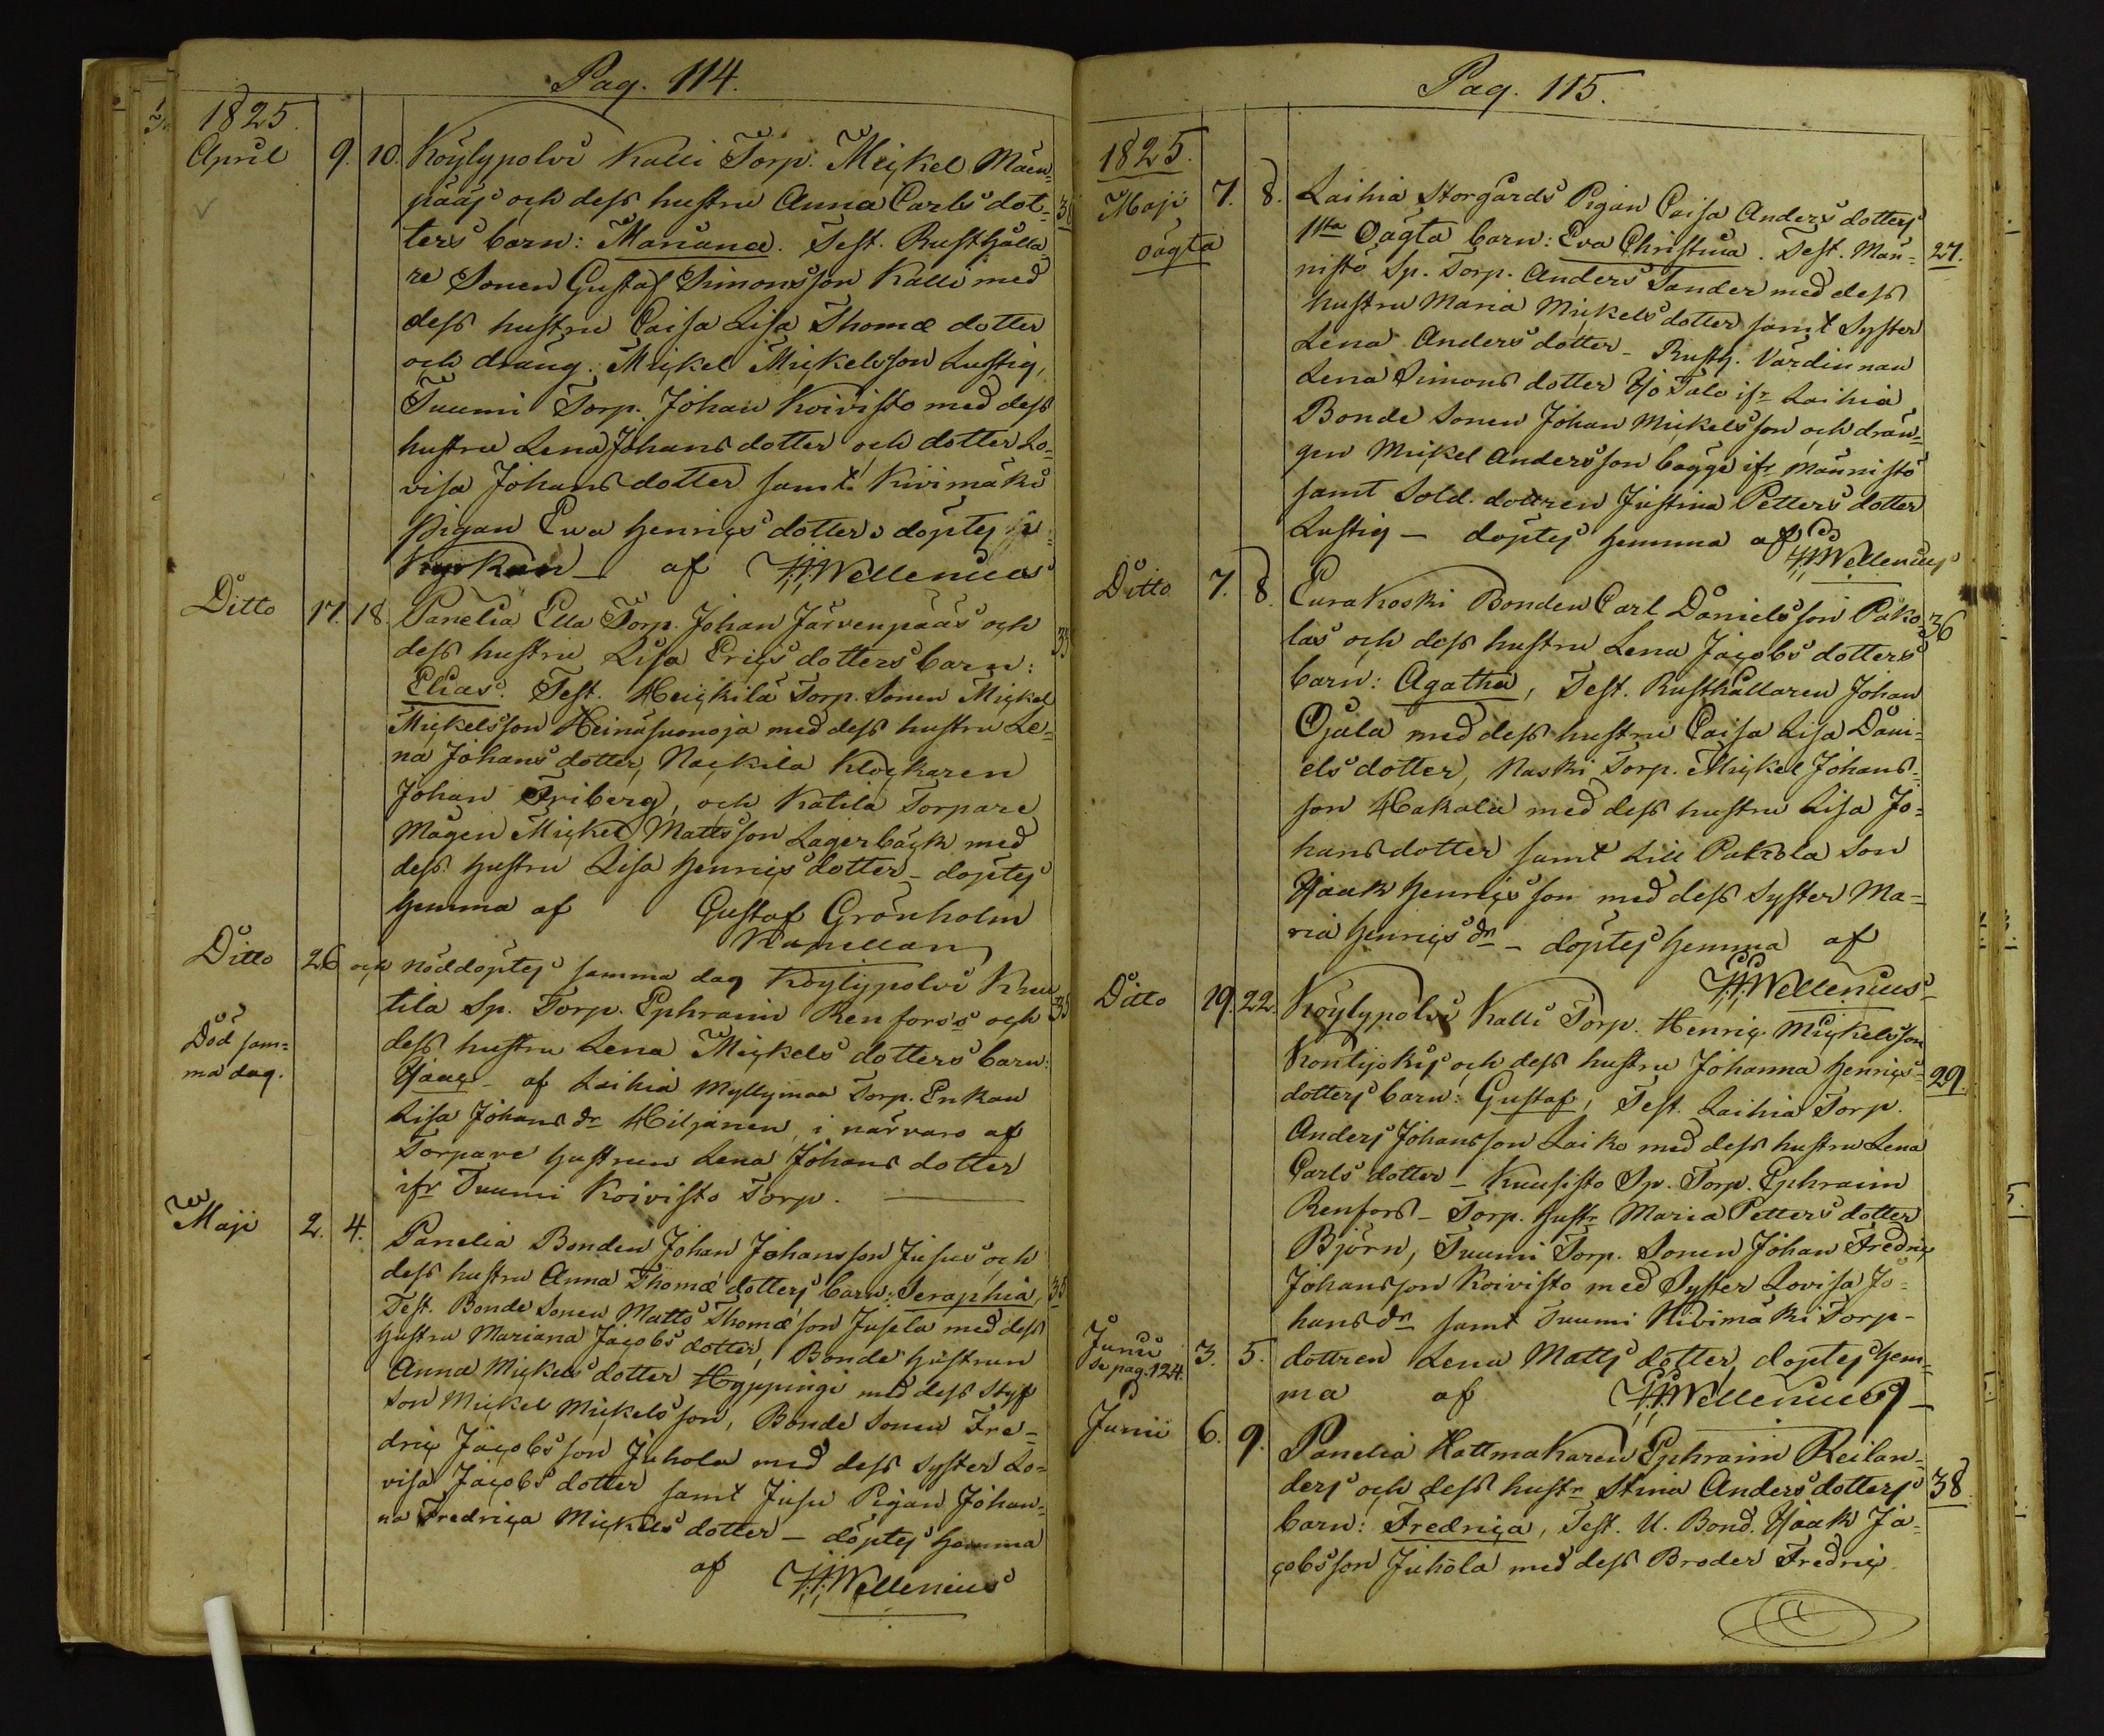 Pag. 114.
1825.
April 9. 10. Köylypolvi Kalli Torp. Mickel Mäen-
pääs och dess hustru Anna Carls dot-
ters barn: Mariana. Test. Rusthålla
re Sonen Gustaf Simonsson Kalli med
dess hustru Caisa Lisa Thomæ dotter
och dräng. Mickel Mickelsson Lustig,
Tuumi Torp. Johan Koivisto med dess
hustru Lena Johans dotter och dotter Lo-
visa Johans dotter samt Kivimäki
pigan Ewa Henrics dotter, döptes i
Kyrkan — af H.H. Wellenius
Ditto 17. 18. Panelia Ella Torp. Johan Järvenpääs och 33
dess hustru Lisa Erics dotters barn:
Elias. Test. Heickilä Torp. Sonen Mickel
Mickelsson Heinäsuonoja med dess hustru Le-
na Johans dotter, Nackila Klockaren
Johan Friberg, och Katila Torpare
Mågen Mickel Mattsson Lagerbäck med
dess hustru Lisa Henrics dotter — döptes
hemma af Gustaf Grönholm
Kapellan
Ditto 26 och nöddöptes samma dag Köylypolvi Knu
tila Sp. Torp. Ephraim Renfors's och 35
Död sam=
ma dag.
dess hustru Lena Mickels dotters barn:
Isaac — af Laihia Myllymaa Torp. Enkan
Lisa Johans dr Hiljanen, i närvaro af
Torpare hustrun Lena Johans dotter
ifr Tuumi Koivisto Torp.
Maji 2. 4. Panelia Bonden Johan Johansson Jusus och
dess hustru Anna Thomæ dotters barn: Seraphia, 35
Test. Bonde Sonen Matts Thomæ son Jusela med dess
hustru Mariana Jacobs dotter, Bonde hustrun
Anna Mickels dotter Hyppingi med dess styf
son Mickel Mickelsson, Bonde Sonen Fre-
dric Jacobsson Juhola med dess syster Lo-
visa Jacobs dotter samt Jusu Pigan Johan-
na Fredrica Mickels dotter — döptes hemma
af H.H. Wellenius
Pag. 115.
1825.
Maji 7. 8. Laihia Storgårds Pigan Caisa Anders dotters
oägta 1sta Oägta barn: Eva Christina. Test. Män- 27.
nistö Sp. Torp. Anders Sander med dess
hustru Maria Mickels dotter samt Syster
Lena Anders dotter — Rusth. Värdinnan
Lena Simons dotter Iso Talo ifr Laihia
Bonde Sonen Johan Mickelsson och drän-
gen Mickel Andersson Bagge ifr Männistö
samt Sold. dottren Justina Petters dotter
Lustig — döptes hemma af
H.H. Wellenius
Ditto 7. 8. Eurakoski Bonden Carl Danielsson Pako- 36
las och dess hustru Lena Jacobs dotters
barn: Agatha, Test. Rusthållaren Johan
Ojala med dess hustru Caisa Lisa Dani-
els dotter, Naski Torp. Mickel Johans-
son Hakala med dess hustru Lisa Jo-
hans dotter samt Lill Pakola Son
Isaak Henricsson med dess syster Ma-
ria Henrics dr — döptes hemma af
H.H. Wellenius
Ditto 19. 22. Köylypolvi Kalli Torp. Henric Mickelsson
Kontijokis och dess hustru Johanna Henrics- 29.
dotters barn: Gustaf, Test. Laihia Torp.
Anders Johansson Laiko med dess hustru Lena
Carls dotter — Kuusisto Sp. Torp. Ephraim
Renfors — Torp. hustr Maria Petters dotter
Björn, Tuumi Torp. Sonen Johan Fredric
Johansson Koivisto med Syster Lovisa Jo-
hans dr samt Tuumi Kivimäki Torp-
Junii 3. 5. dottren Lena Matts dotter, döptes hem-
Se pag. 124.
ma af H.H. Wellenius
Junii 6. 9. Panelia Hattmakaren Ephraim Reilan-
ders och dess hustr Stina Anders dotters 38
barn: Fredrica, Test. U. Bond. Isaak Ja-
cobsson Juhola med dess Broder Fredric